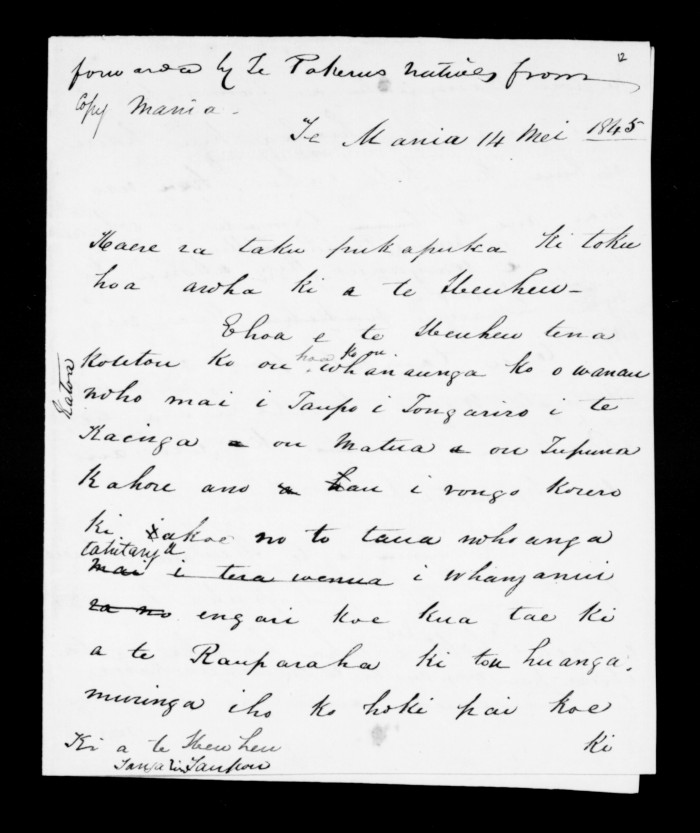 12
forwarded by Te Pakerus natives from
Copy Mania.
Te Mania 14 Mei 1845
Haere ra taku pukapuka ki toku
hoa aroha ki a te Heuheu-
Ehoa e te Heuheu tena
hoa ko ou
koutou ko ou whanaunga ko o wanau
katoa
noho mai i Taupo i Tongariro i te
Kaeinga a ou Matua a ou Tupuna
Kahore ano a hau i rongo korero
ki a koe no to taua nohoanga
tahitanga
mai i tera wenua i Whanganui
ra no engari koe kua tae ki
a te Rauparaha ki tou huanga.
muringa iho ko hoki pai koe
Ki a te Heuheu
ki